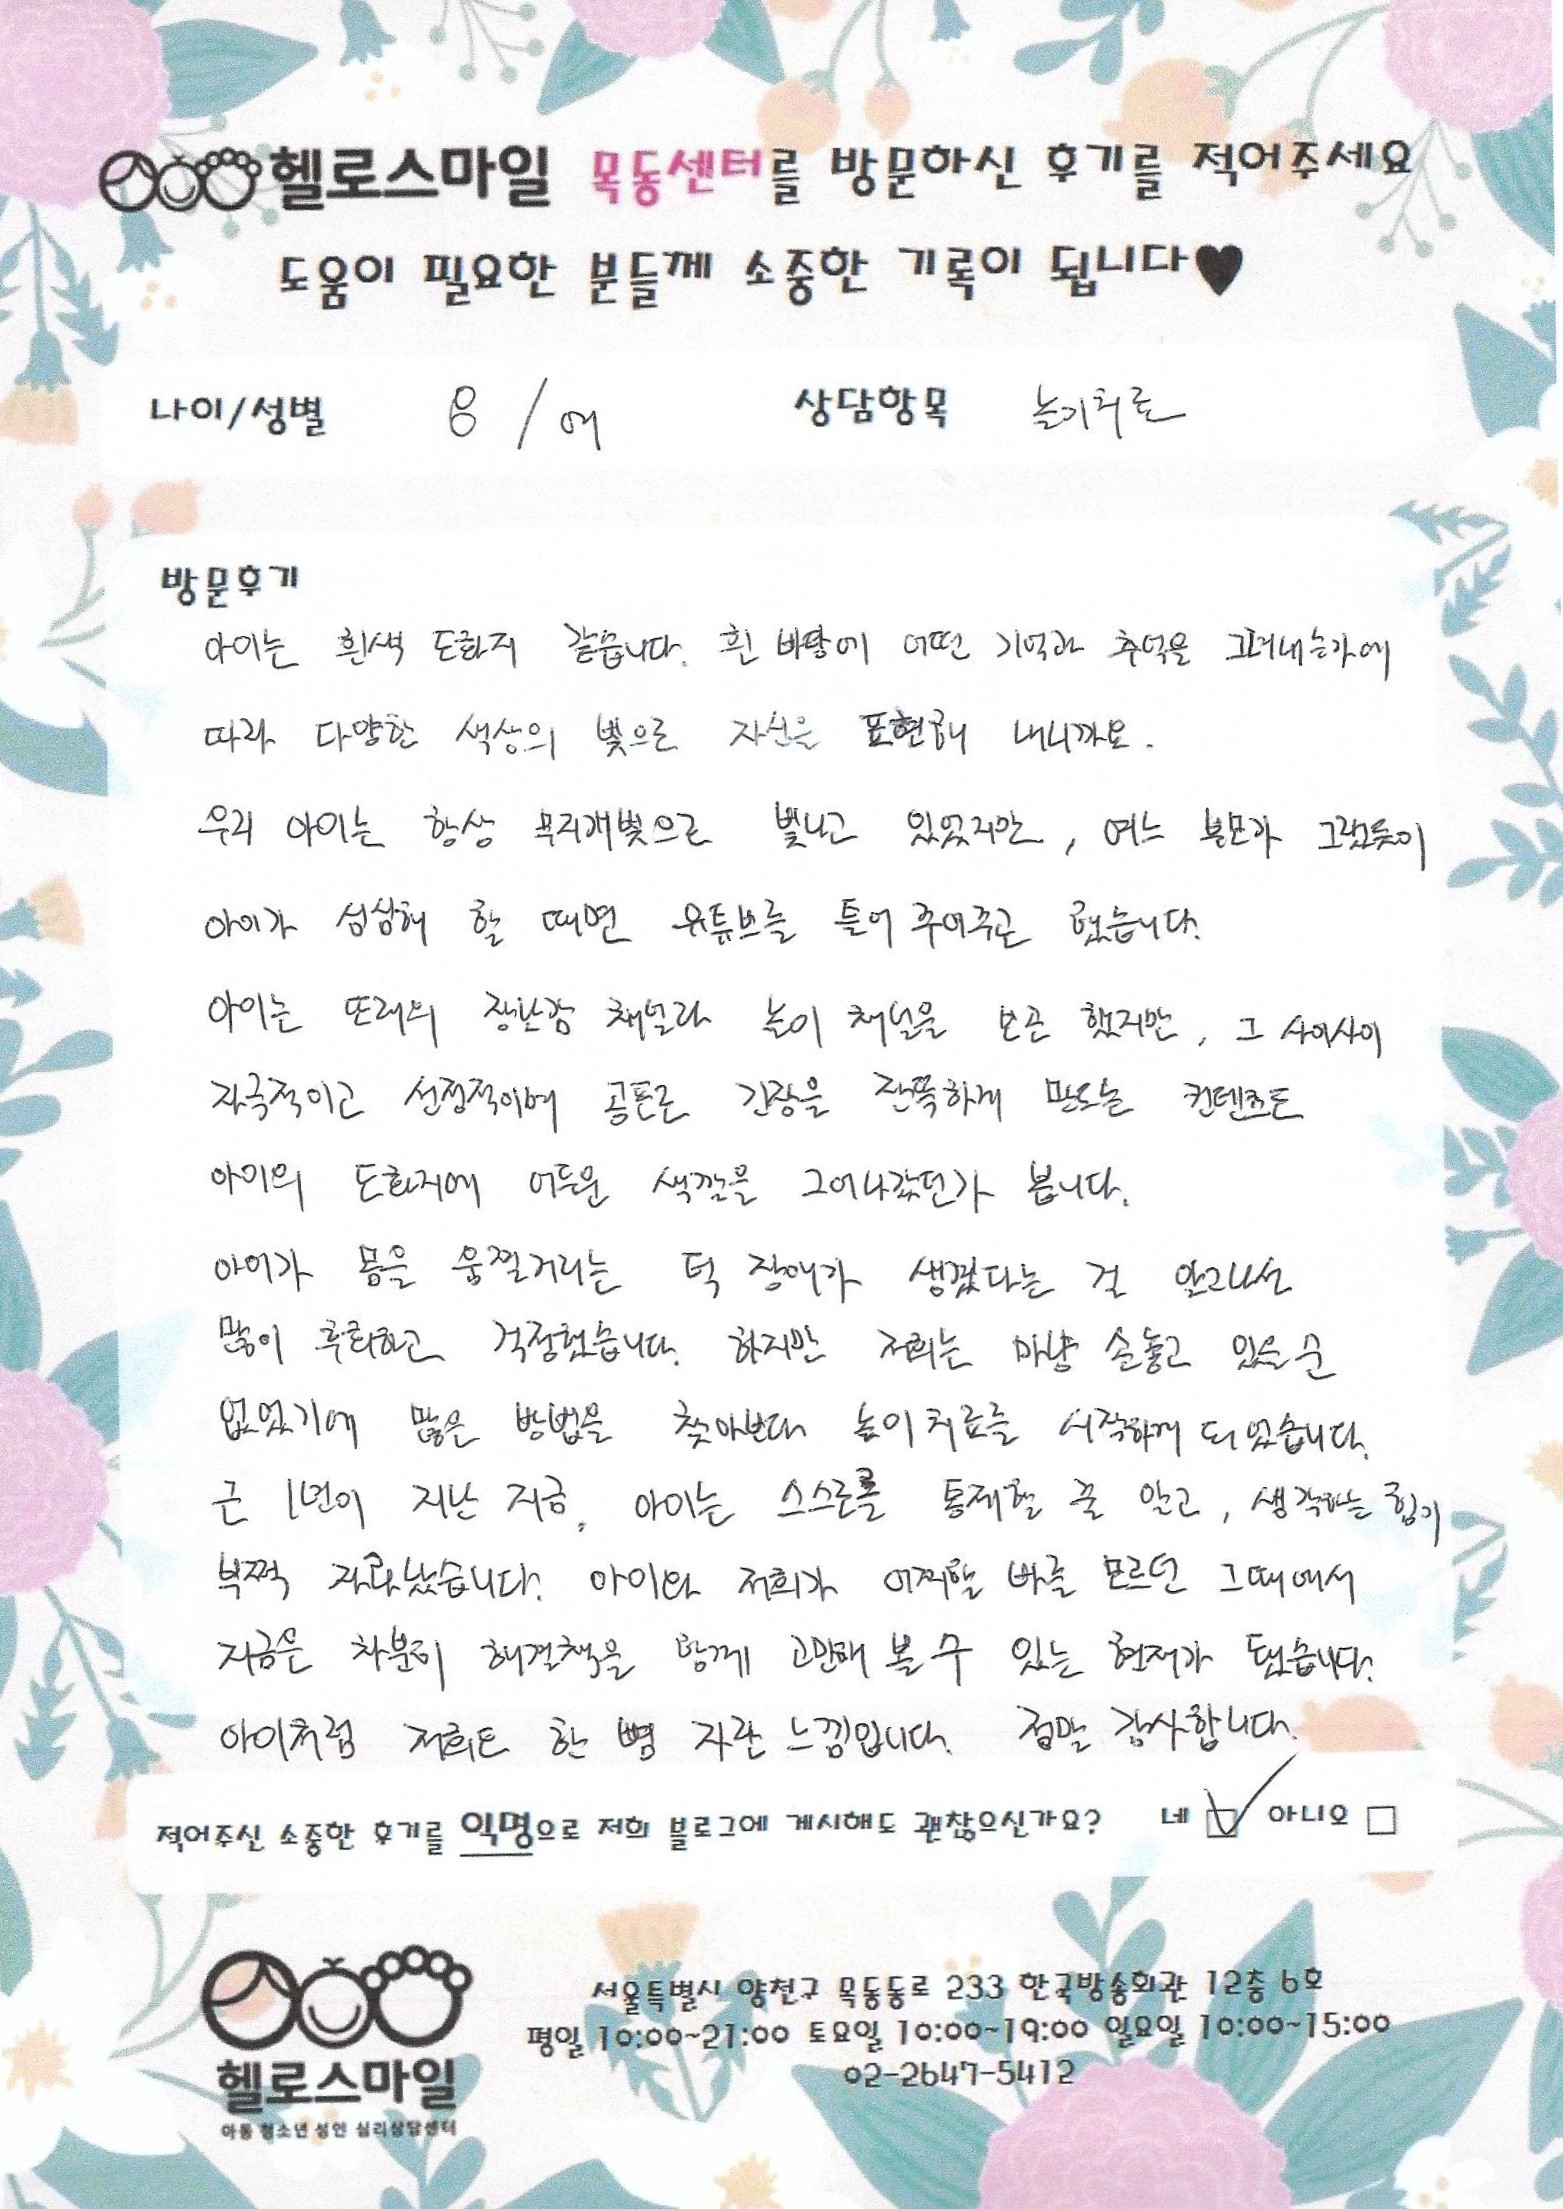 헬로스마일 목동센터를 방문하신 후기를 적어주세요
도움이 필요한 분들께 소중한 기록이 됩니다♥
나이/성별 8 / 여 상담항목 놀이치료
방문후기
아이는 흰색 도화지 같습니다. 흰 바탕에 어떤 기억과 추억을 그려내는가에
따라 다양한 색상의 빛으로 자신을 표현해 내니까요.
우리 아이는 항상 무지개빛으로 빛나고 있었지만, 여느 부모가 그렇듯이
아이가 심심해 할 때면 유튜브를 틀어 주어주곤 했습니다.
아이는 또래의 장난감 채널과 놀이 채널을 보곤 했지만, 그 사이사이
자극적이고 선정적이며 공포로 긴장을 잔뜩하게 만드는 컨텐츠도
아이의 도화지에 어두운 색깔을 그어나갔던가 봅니다.
아이가 몸을 움찔거리는 턱 장애가 생겼다는 걸 알고나선
많이 후회하고 걱정했습니다. 하지만 저희는 마냥 손놓고 있을 순
없었기에 많은 방법을 찾아보다 놀이치료를 시작하게 되었습니다.
근 1년이 지난 지금, 아이는 스스로를 통제할 줄 알고, 생각하는 힘이
부쩍 자라났습니다. 아이와 저희가 어찌할 바를 모르던 그때에서
지금은 차분히 해결책을 함께 고민해 볼 수 있는 현재가 됐습니다.
아이처럼 저희도 한 뼘 자란 느낌입니다. 정말 감사합니다.
적어주신 소중한 후기를 익명으로 저희 블로그에 게시해도 괜찮으신가요? 네 ☑ 아니오 □
서울특별시 양천구 목동동로 233 한국방송회관 12층 6호
평일 10:00~21:00 토요일 10:00~19:00 일요일 10:00~15:00
02-2647-5412
헬로스마일
아동 청소년 성인 심리상담센터